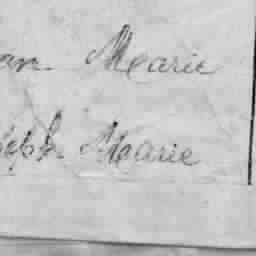 an Marie
seph Marie